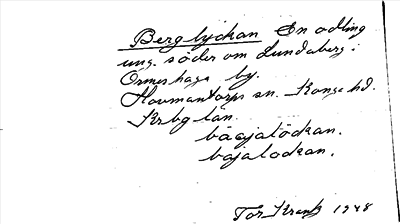 Berglyckan En odling
ung. söder om Lundaberg i
Ormeshaga by.
Hovmantorps sn. Konga hd.
Krbg län.
bäajalödkan.
bajalodkan.
Tor Krantz 1948